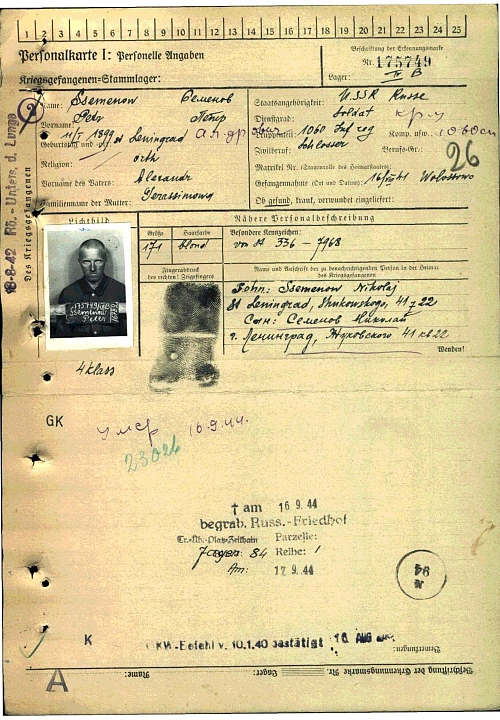 1 2 3 4 5 6 7 8 9 10 11 12 13 14 15 16 17 18 19 20 21 22 23 24 25
Personalkarte I: Personelle Angaben
Kriegsgefangenen-Stammlager:
Beschriftung der Erkennungsmarke
Nr. 175749
Lager: IV B
2
Name: Ssemenow Семенов
Vorname: Petr Петр
Geburtstag und -ort: 11/I 1899 st Leningrad
Religion: orth
Vorname des Vaters: Alexandr
Familienname der Mutter: Gerassimowa
Staatsangehörigkeit: USSR Russe
Dienstgrad: Soldat
Truppenteil: 1060 Inf reg Komp. usw.:
Zivilberuf: Schlosser Berufs-Gr.:
26
Matrikel Nr. (Stammrolle des Heimatstaates):
Gefangennahme (Ort und Datum): 41 Wolossowo
Ob gesund, krank, verwundet eingeliefert:
18-8-42 Rö.-Unters. d. Lunge
Des Kriegsgefangenen
Lichtbild
Nähere Personalbeschreibung
Größe Haarfarbe Besondere Kennzeichen:
171 blond von St 336 - 7968
Fingerabdruck
des rechten! Zeigefingers
Name und Anschrift der zu benachrichtigenden Person in der Heimat
des Kriegsgefangenen
175749 IV B
Ssemenow
Petr
Sohn: Ssemenow Nikolaj
St Leningrad, Shukowskogo, 41 z 22
Сын: Семенов Николай
г. Ленинград, Жуковского 41 кв 22
Wenden!
4 klass
GK
умер 16.9.44.
23026
† am 16 9.44
begrab. Russ.-Friedhof
Tr.-Üb.-Platz-Zeithain Parzelle:
84 Reihe: 1
Am: 17 9.44
94
K
OKW-Befehl v. 10.1.40 bestätigt 16 AUG
Bemerkungen:
Beschriftung der Erkennungsmarke Nr. Lager: Name:
A